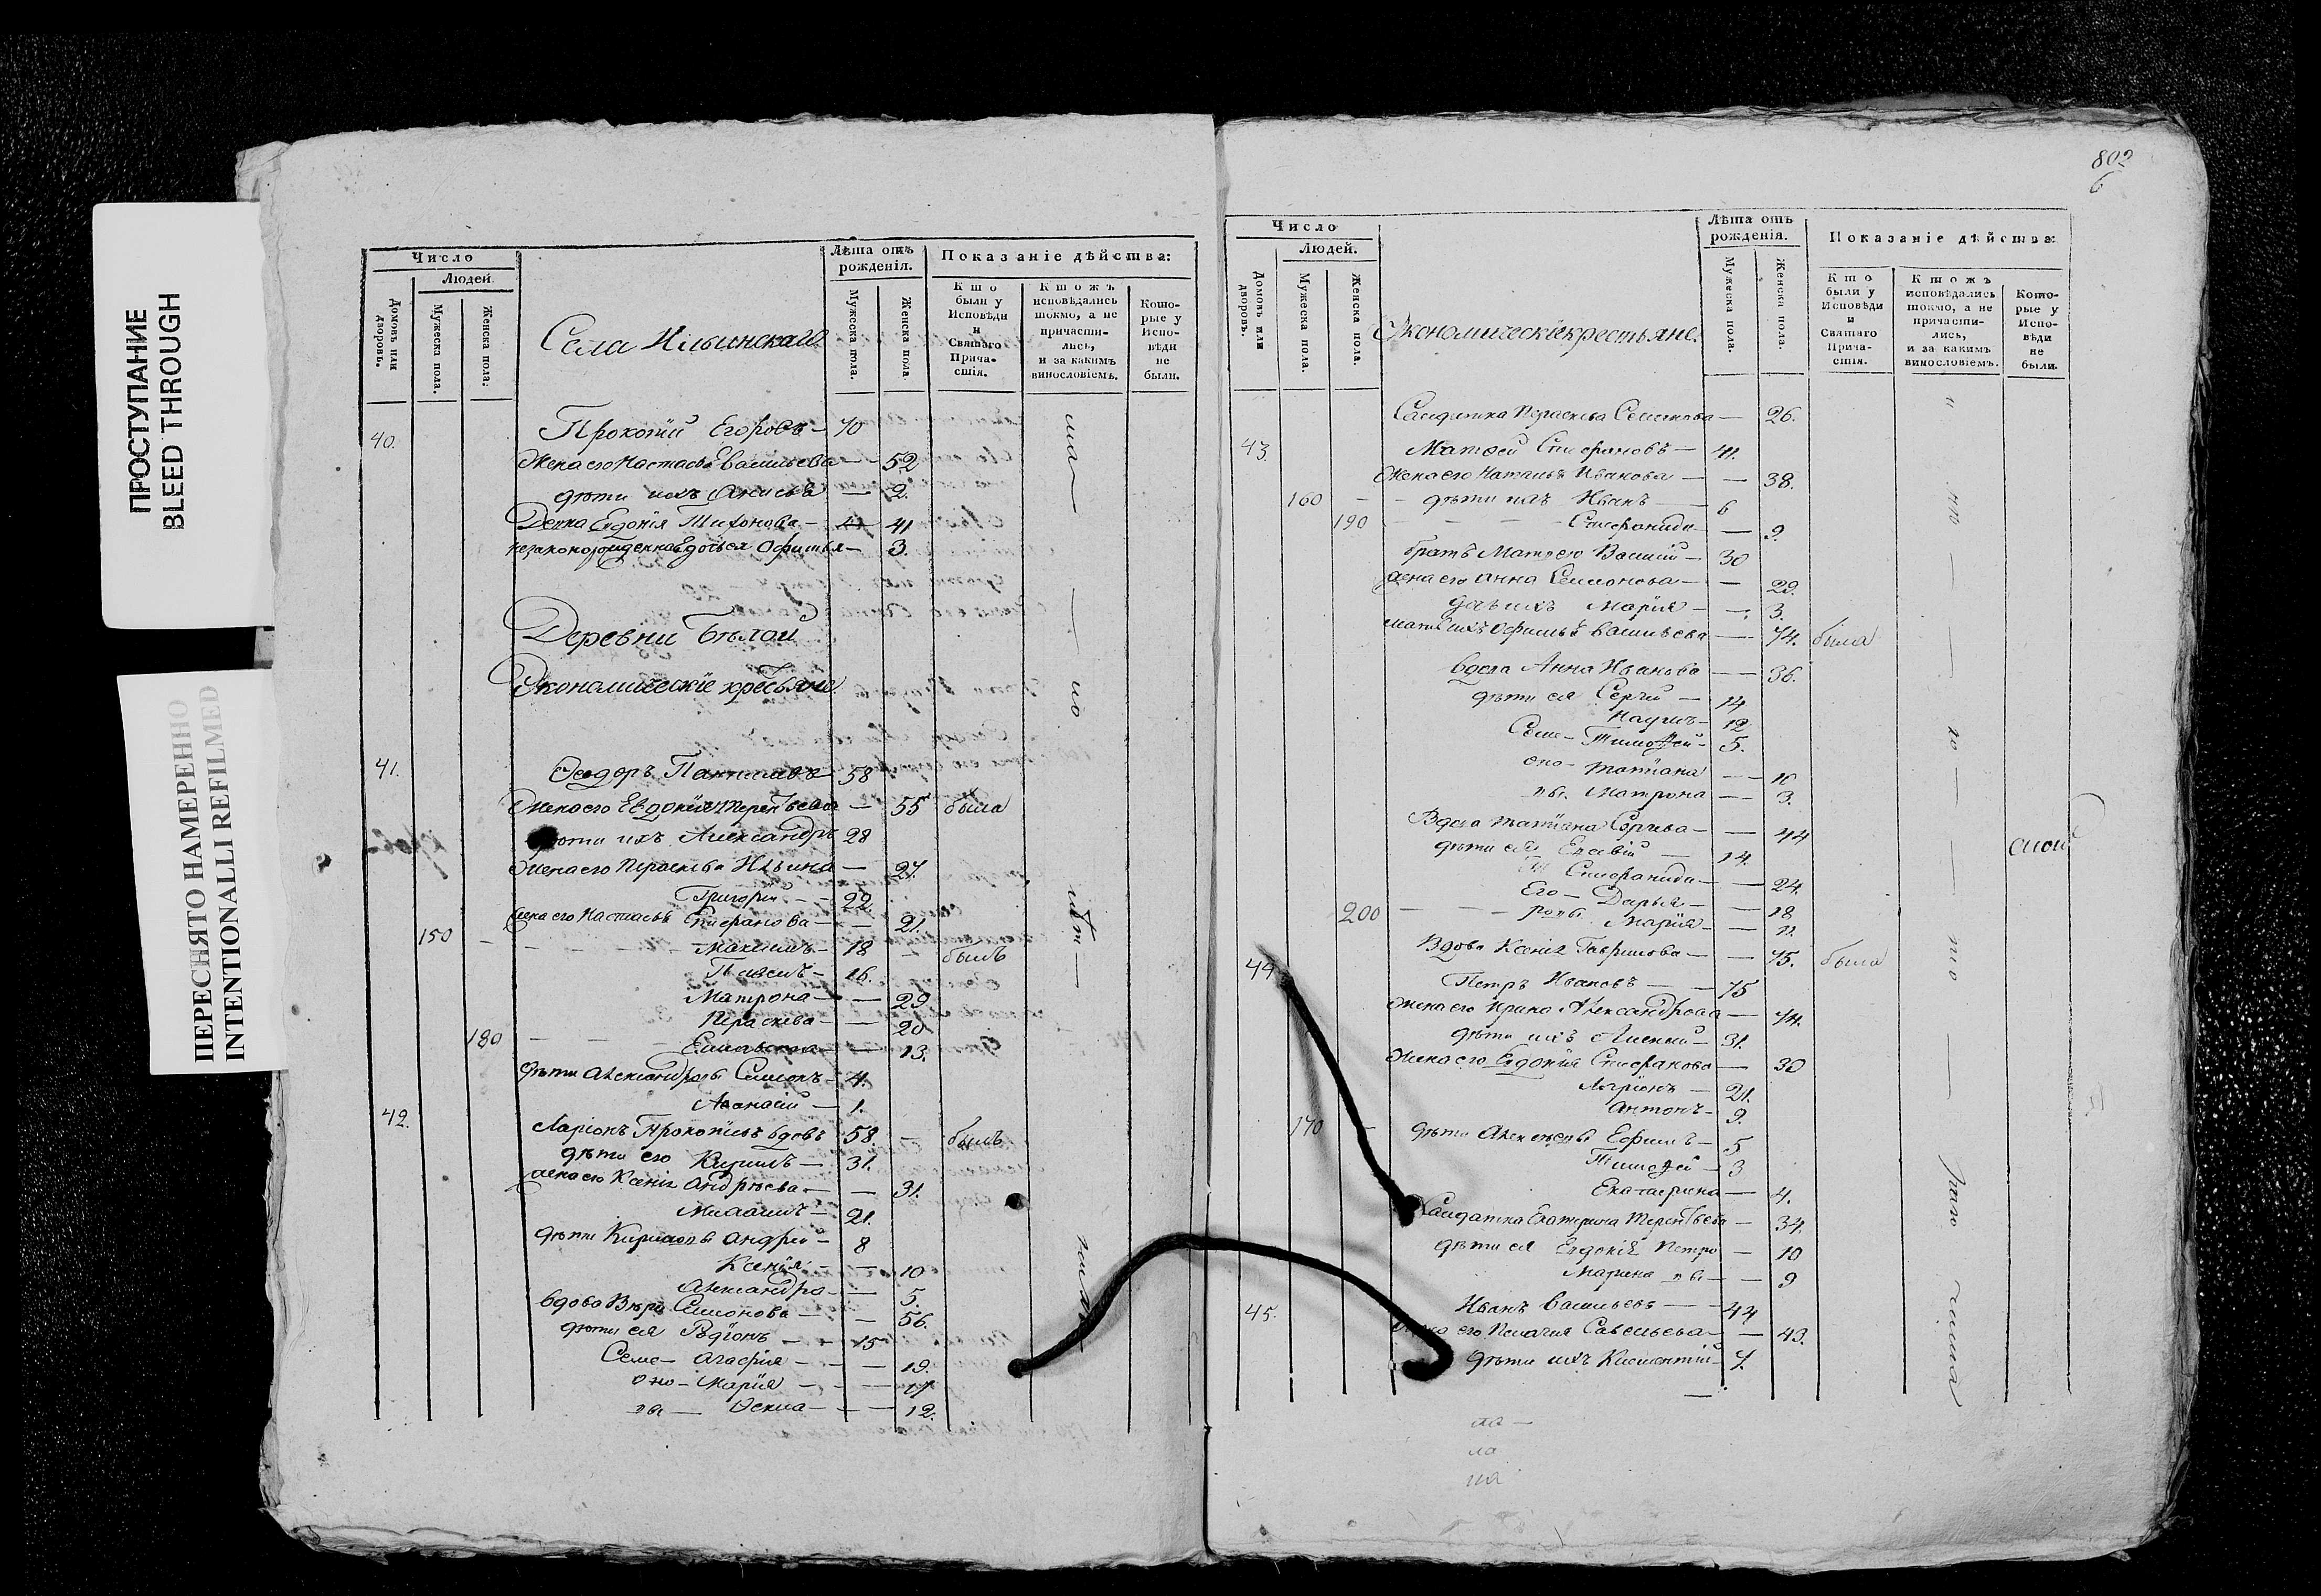 ПРОСТУПАНИЕ
BLEED THROUGH
ПЕРЕСНЯТО НАМЕРЕННО
INTENTIONALLI REFILMED
Число
Людей
Домовъ или дворовъ.
Мужеска пола.
Женска пола.
Села Ильинскаго
Лѣта отъ рожденія.
Мужеска пола.
Женска пола.
Показаніе дѣйства:
Кто были у Исповѣди и Святаго Причастія.
Ктожъ исповѣдались токмо, а не причастились, и за какимъ винословіемъ.
Которые у Исповѣди не были.
40. Прокопій Егоровъ — 70
Жена его Настасья Васильева — 52
дѣти ихъ Анисья — 2.
Девка Евдокія Тихонова — 41
3.
Деревни Бѣлой
Экономическіе крестьяне
41. Ѳеодоръ 58
Жена его Евдокія Терентьева — 55 была
дѣти ихъ Александръ 28
Жена его Параскева Ильина — 27.
Григорій — 22.
Жена его Настасья Стефанова — 21.
150 — Максимъ — 18 — былъ
16.
Матрона — 29
Параскева — 20
180 — 13.
дѣти Александровы Симонъ — 4.
Аѳанасій — 1.
42. Ларіонъ Прокопьевъ вдовъ 58. — былъ
дѣти его Кирилъ — 31.
жена его Ксенія Андрѣева — 31.
21.
дѣти Кириловы Андрей — 8
Ксенія — 10
Александра — 5.
вдова Вѣра Симонова — 56.
дѣти ея Родіонъ — 15
Семе — Агафія — 19.
оно — Марія — 17
вы — 12.
802
6
Число
Людей.
Домовъ или дворовъ.
Мужеска пола.
Женска пола.
Экономическіе крестьяне.
Лѣта отъ рожденія.
Мужеска пола.
Женска пола.
Показаніе дѣйства:
Кто были у Исповѣди и Святаго Причастія.
Ктожъ исповѣдались токмо, а не причастились, и за какимъ винословіемъ.
Которые у Исповѣди не были.
Салдатка Параскева 26.
43. Матѳей Стефановъ — 41.
Жена его Наталья Иванова — 38.
160 — дѣти ихъ Иванъ — 6
190 — Стефанида — 9.
братъ Матѳею Василій — 30
жена его Анна Симонова — 29.
дочь ихъ Марія — 3.
мать ихъ Васильева — 74. была
вдова Анна Иванова — 36.
дѣти ея Сергій — 14
Наумъ — 12
Семе — Тимоѳей — 5.
оно — Татіана — 10
вы. Матрона — 3.
Вдова Татіана 44
дѣти ея 14.
Стефанида — 24.
Его — Дарья — 18
200 — ровы Марія — 11.
Вдова Ксенія Гаврилова — 75. была
44. Петръ Ивановъ — 75
Жена его Ирина Александрова — 74.
дѣти ихъ Алексій — 31.
Жена его Евдокія Стефанова — 30
Ларіонъ — 21.
Антонъ — 9.
170 — дѣти Алексѣевы Ефимъ — 5
Тимоѳей — 3
Екатерина — 4.
Салдатка Екатерина Терентьева — 34.
дѣти ея Евдокія Петро — 10
Марина вы — 9
45. Иванъ Васильевъ — 44
Жена его Пелагія Савельева — 43.
дѣти ихъ 7.